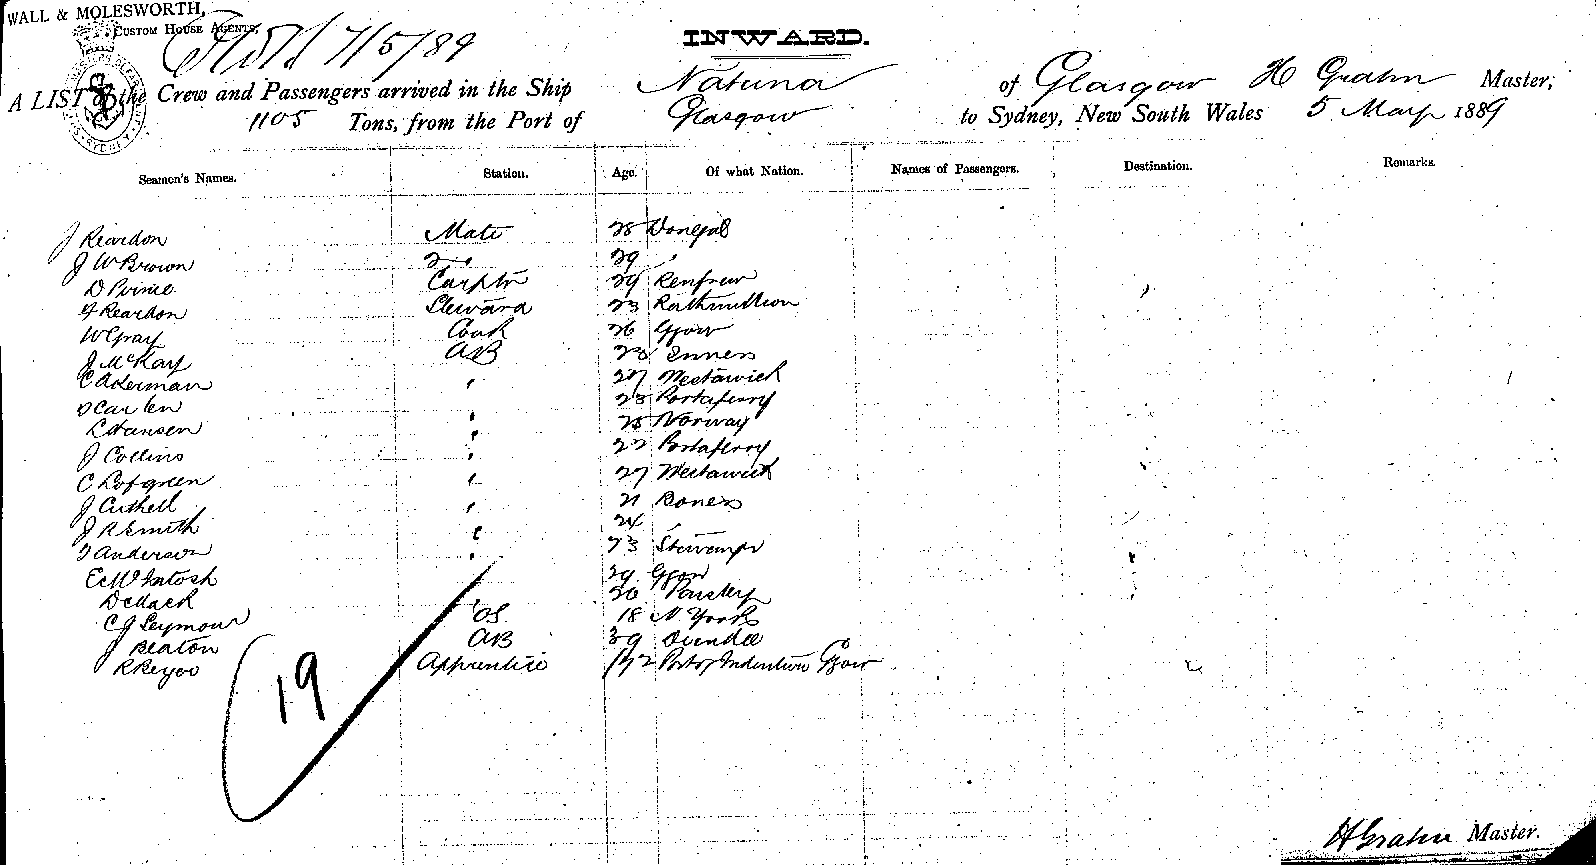 WALL & MOLESWORTH,
CUSTOM HOUSE AGENTS,
7/5/89
INWARD.
A LIST of the Crew and Passengers arrived in the Ship Natuna of Glasgow H Grahn Master,
1105 Tons, from the Port of Glasgow to Sydney, New South Wales 5 May 1889
Seamen's Names. Station. Age. Of what Nation. Names of Passengers. Destination. Remarks.
J Reardon Mate 28 Donegal
J W Brown 2 29 "
D Prime Carptr 29 Renfrew
J Reardon Steward 23
W Gray Cook 26 Ggow
J McKay AB 23
C Akerman " 27 Westawick
D Carlen " 23 Portaferry
L Hansen " 25 Norway
J Collins " 22 Portaferry
C Lofgreen " 27 Westawick
J Cuthell " 21 Boness
J R Smith " 24
T Anderson " 23
E McIntosh 29 Ggow
D Mack " 20 Paisley
C J Seymour OS 18 N York
J Beaton AB 39 Dundee
R Apprentice Port of Indenture Ggow
19
H Grahn Master.